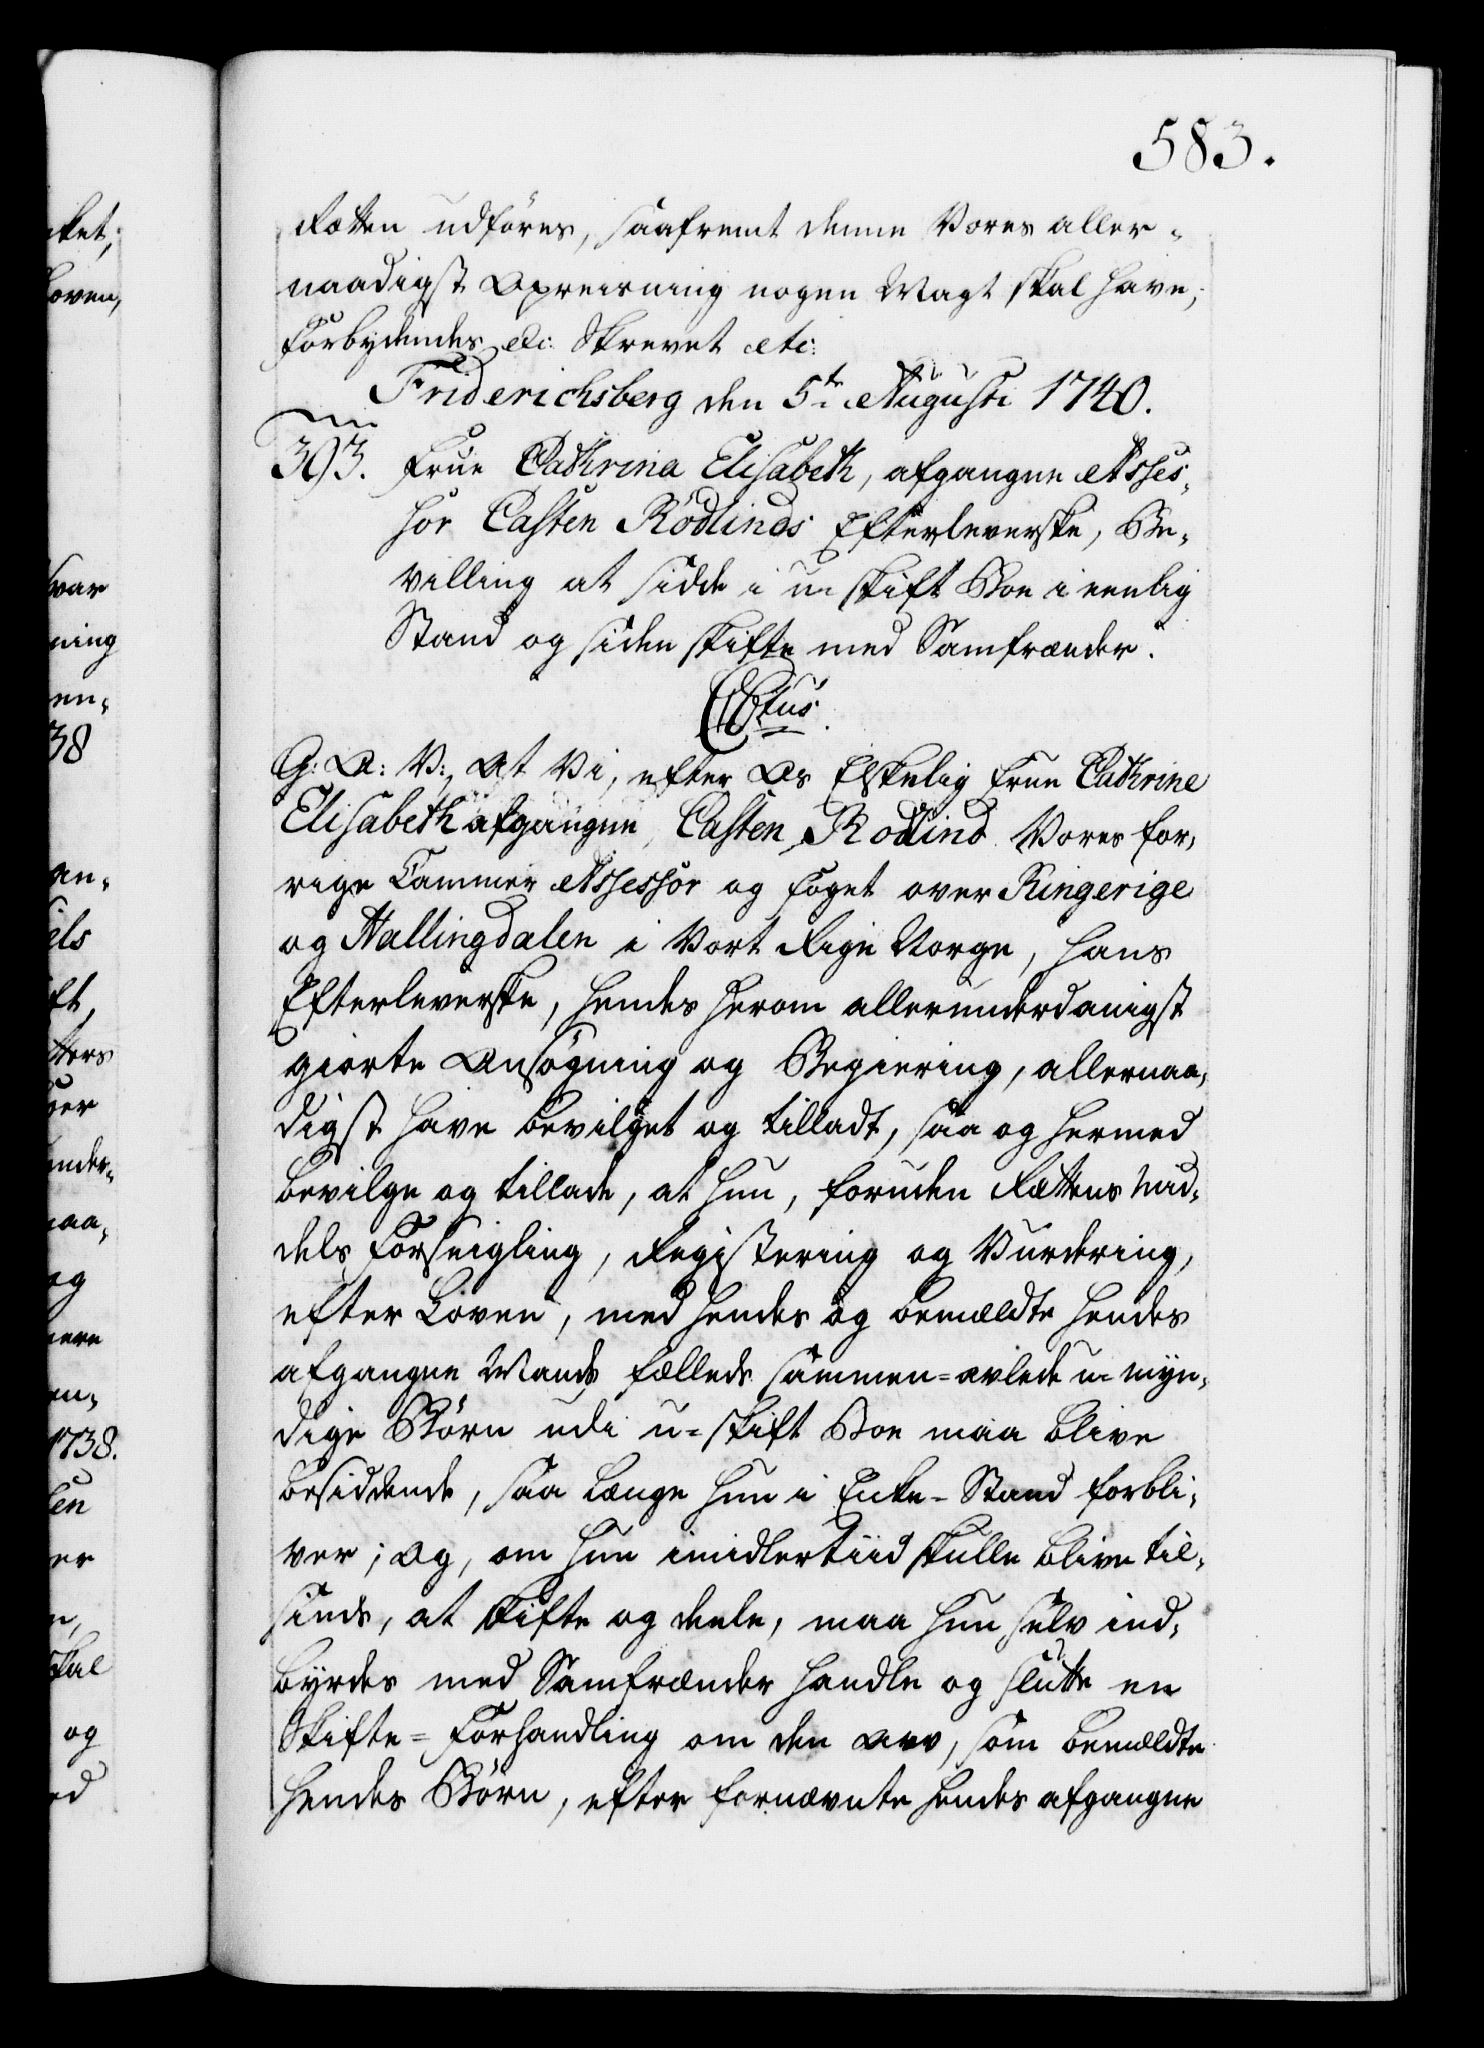 583.
Retten udføres, saafremt denne Vores aller-
naadigst Opreisning nogen Magt skal have;
Forbydendes etc: Skrevet etc:
Friderichsberg den 5te Augusti 1740.
393. Frue Cathrina Elisabeth, afgangne Asses-
sor Casten Rödlinds Efterleverske, Be-
villing at sidde i u-skift Boe i eenlig
Stand og siden skifte med Samfrænder.
G: A: V:, At Vi, efter Os Elskelig Frue Cathrine
Elisabeth afgangne, Casten Rodlind Vores for-
rige Cammer Assessor og Foget over Ringerige
og Hallingdalen i Vort Rige Norge, hans
Efterleverske, hendes herom allerunderdanigst
giorte Ansøgning og Begiering, allernaa-
digst have bevilget og tilladt, saa og hermed
bevilge og tillade, at hun, foruden Rettens Mid-
dels Forseigling, Registering og Vurdering,
efter Loven, med hendes og bemældte hendes
afgangne Mands fælleds sammen-avlede u-myn-
dige Børn udi u-skift Boe maa blive
besiddende, saa længe hun i Enke-Stand forbli-
ver; Og, om hun imidlertiid skulle blive til-
sinds, at skifte og deele, maa hun selv ind-
byrdes med Samfrænder handle og slutte en
Skifte-Forhandling om den Arv, som bemældte
hendes Børn, efter fornævnte hendes afgangne